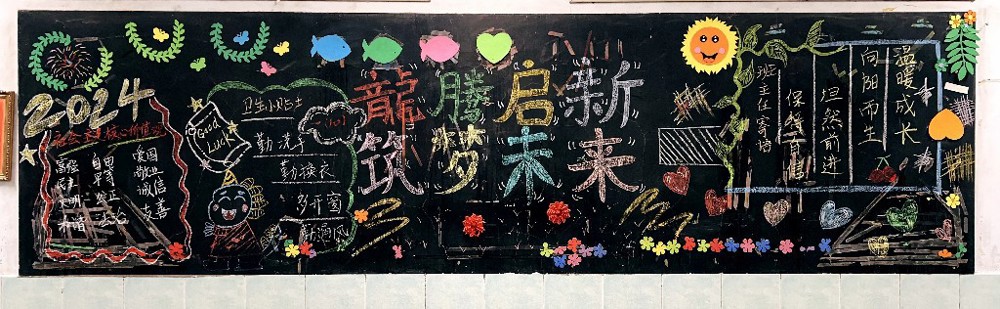 2024
社会主义核心价值观
富强 自由 爱国
民主 平等 敬业
文明 公正 诚信
和谐 法治 友善
Good
Luck
卫生小贴士
勤洗手
勤换衣
多开窗
龍腾启新
筑梦未来
温暖成长
向阳而生
坦然前进
班主任寄语